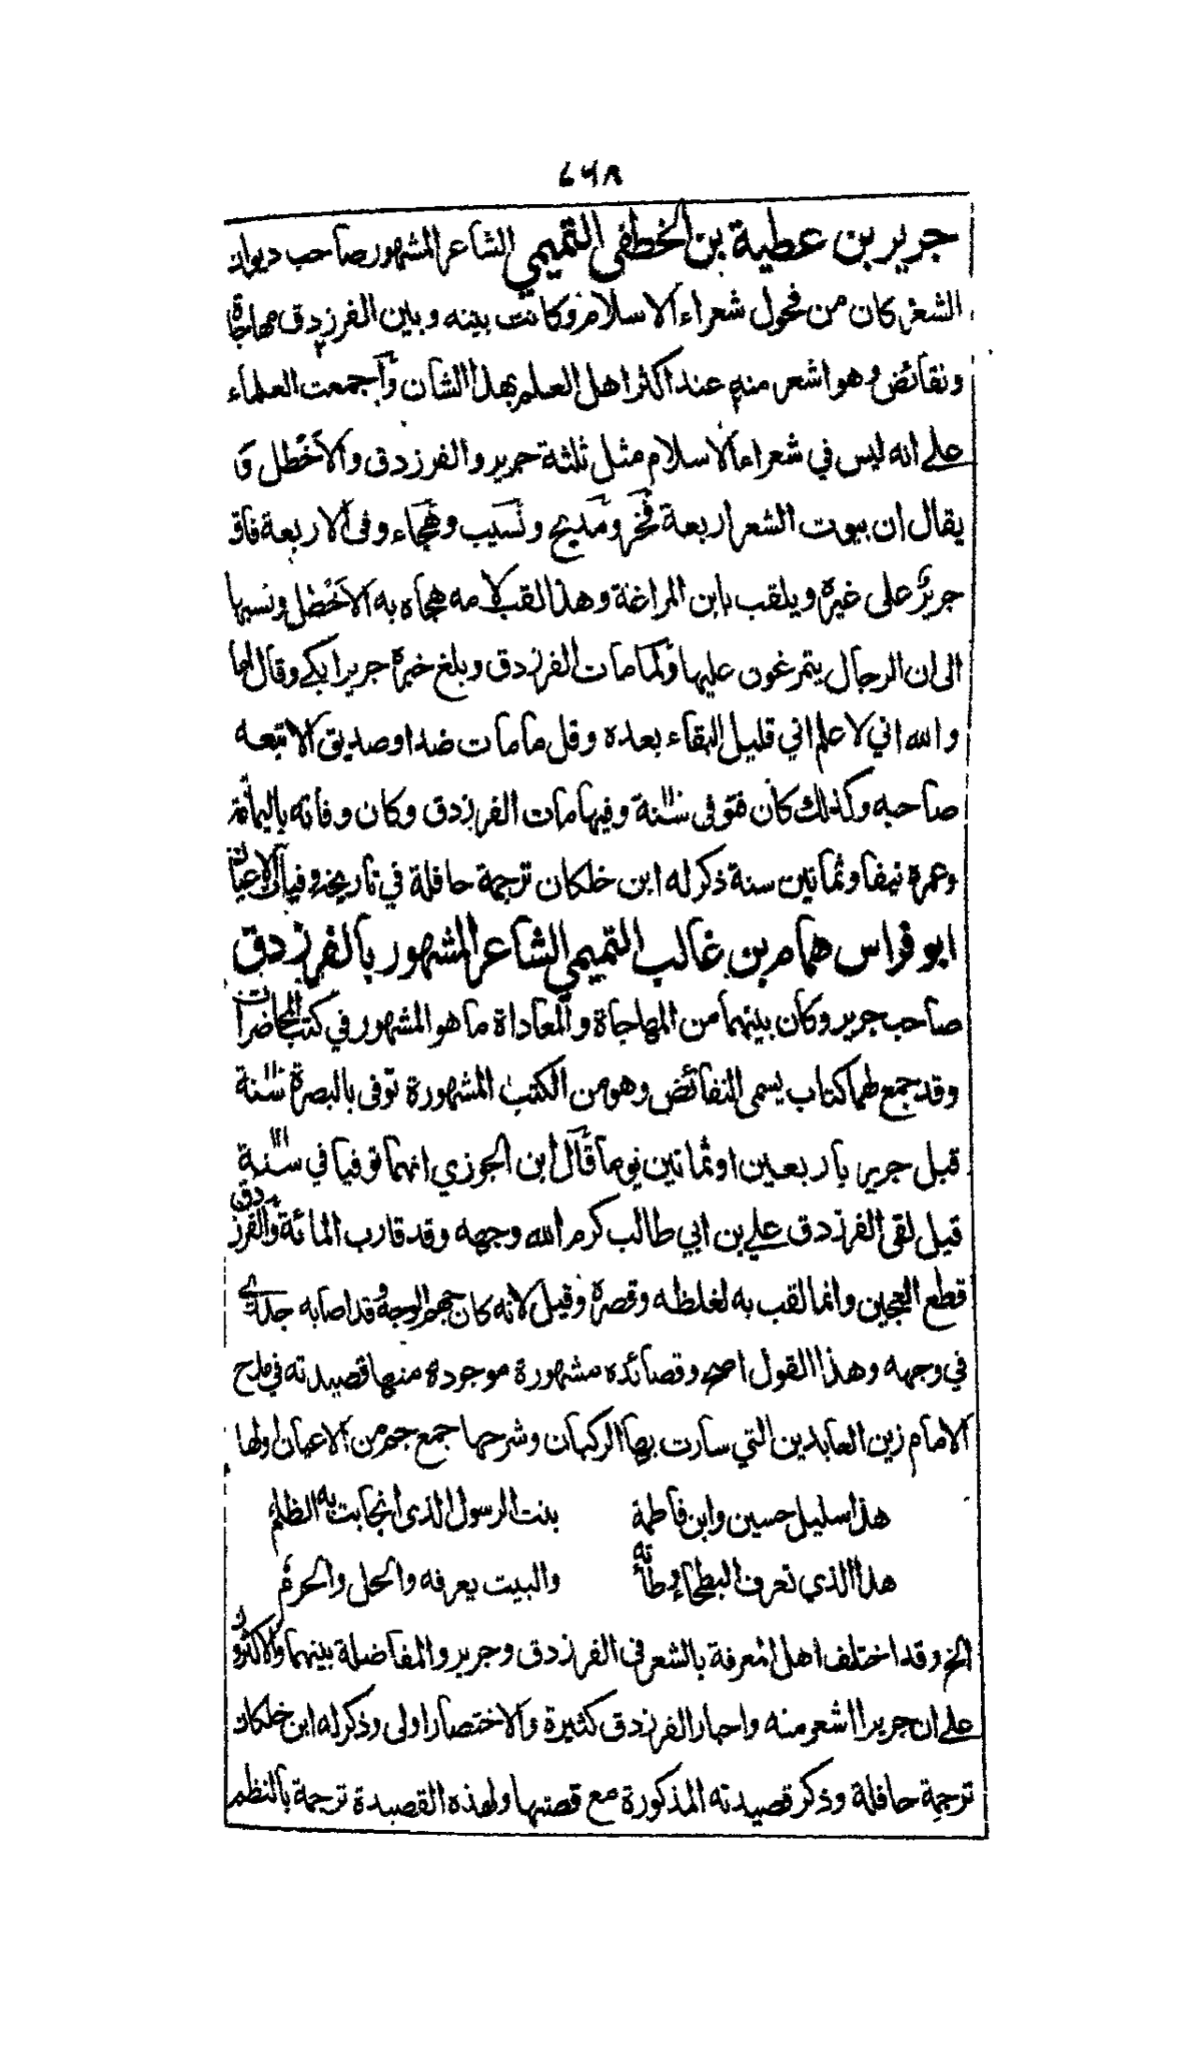 ٦٩٨
جرير بن عطية بن الخطفى التميمي الشاعر المشهور صاحب ديوان
الشعر كان من فحول شعراء الاسلام وكانت بينه وبين الفرزدق مهاجاة
ونقائض وهو اشعر منه عند اكثر اهل العلم بهذا الشان وأجمعت العلماء
على انه ليس في شعراء الاسلام مثل ثلثة جرير والفرزدق والأخطل و
يقال ان بيوت الشعر اربعة فخر ومديح ونسيب وهجاء وفى الاربعة فاق
جرير على غيره ويلقب بابن المراغة وهذا لقب لامه هجاه به الأخطل ونسبها
الى ان الرجال يتمرغون عليها ولما مات الفرزدق وبلغ خبره جريرا بكى وقال اما
والله اني لاعلم اني قليل البقاء بعده وقل ما مات ضد او صديق الا تبعه
صاحبه وكذلك كان فتوفى سنة وفيها مات الفرزدق وكان وفاته باليمامة
وعمره نيفا وثمانين سنة ذكر له ابن خلكان ترجمة حافلة في تاريخه وفيات الاعيان
ابو فراس همام بن غالب التميمي الشاعر المشهور بالفرزدق
صاحب جرير وكان بينهما من المهاجاة والمعاداة ما هو المشهور في كتب المحاضرات
وقد جمع لهما كتاب يسمى النقائض وهو من الكتب المشهورة توفى بالبصرة سنة
قبل جرير باربعين او ثمانين يوما قال ابن الجوزي انهما توفيا في سنة ١١١
قيل لقى الفرزدق على بن ابي طالب كرم الله وجهه وقد قارب المائة والفرزدق
قطع العجين وانما لقب به لغلظه وقصره وقيل لانه كان جهم الوجه وقد اصابه جدري
في وجهه وهذا القول اصح وقصائده مشهورة موجودة منها قصيدته في مدح
الامام زين العابدين التي سارت بها الركبان وشرحها جمع جم من الاعيان اولها
هذا سليل حسين وابن فاطمة بنت الرسول الذى انجابت به الظلم
هذا الذي تعرف البطحاء وطأته والبيت يعرفه والحل والحرم
الخ وقد اختلف اهل المعرفة بالشعر في الفرزدق وجرير والمفاضلة بينهما والاكثرون
على ان جريرا اشعر منه واخبار الفرزدق كثيرة والاختصار اولى وذكر له ابن خلكان
ترجمة حافلة وذكر قصيدته المذكورة مع قصتها ولهذه القصيدة ترجمة بالنظم